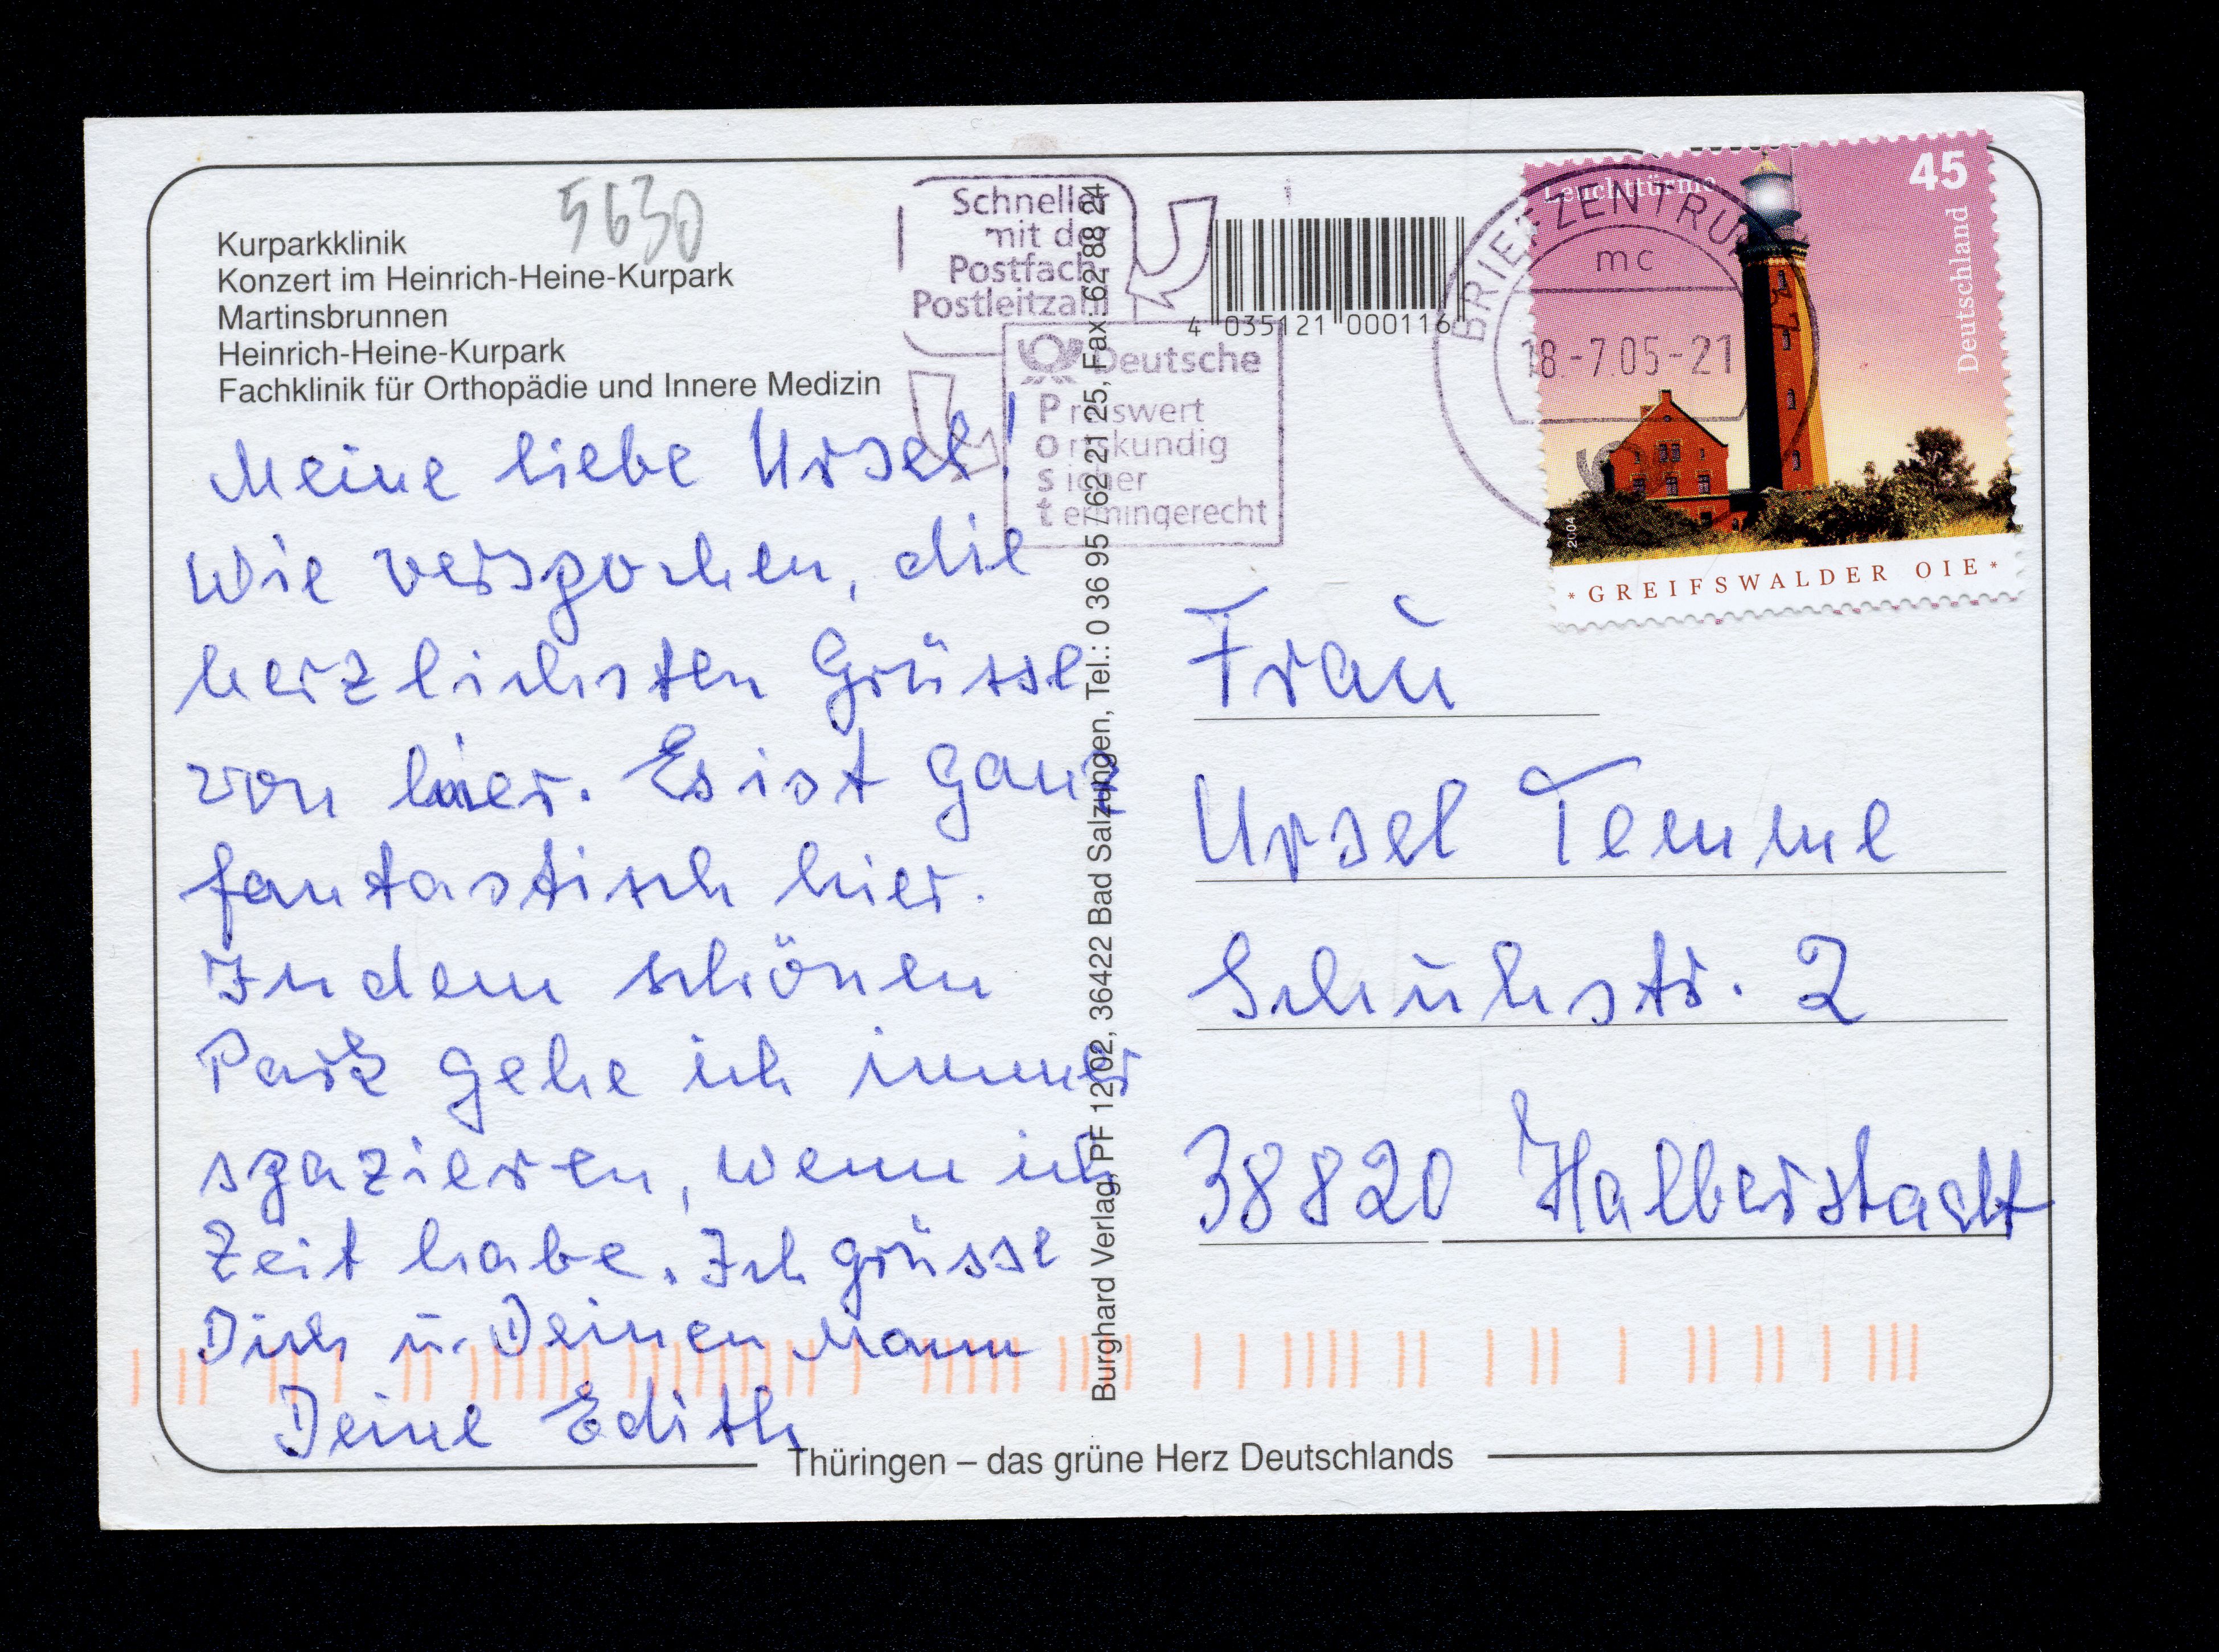 5630
Kurparkklinik
Konzert im Heinrich-Heine-Kurpark
Martinsbrunnen
Heinrich-Heine-Kurpark
Fachklinik für Orthopädie und Innere Medizin
Meine liebe Ursel!
Wie versprochen, die
herzlichsten Grüsse
von hier. Es ist ganz
fantastisch hier.
In dem schönen
Park gehe ich immer
spazieren, wenn ich
Zeit habe. Ich grüsse
Dich u. Deinen Mann
Deine Edith
Schneller
mit der
Postfach-
Postleitzahl
Deutsche
Preiswert
ortskundig
sicher
termingerecht
Burghard Verlag, PF 1202, 36422 Bad Salzungen, Tel.: 0 36 95 / 62 21 25, Fax: 62 88 24
4 035121 000116
BRIEFZENTRUM
mc
18.-7.05-21
Leuchttürme
45
Deutschland
2004
*GREIFSWALDER OIE*
Frau
Ursel Temme
Schuhstr. 2
38820 Halberstadt
Thüringen – das grüne Herz Deutschlands